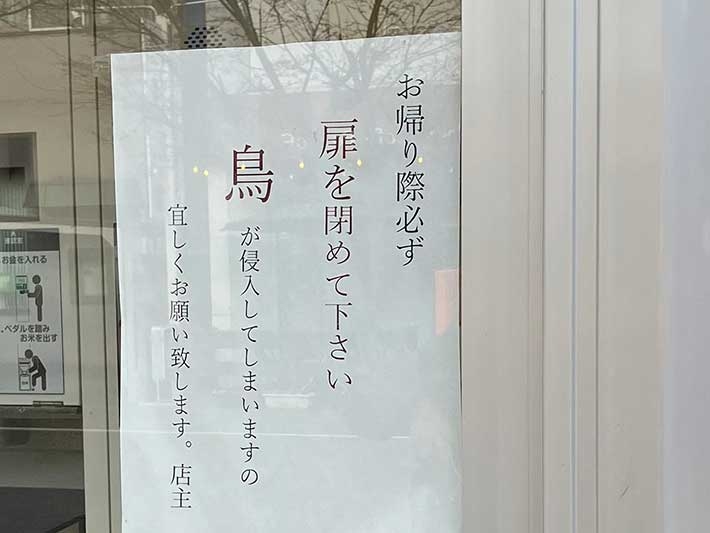 お帰り際必ず
扉を閉めて下さい
鳥が侵入してしまいますの
宜しくお願い致します。店主
お金を入れる
ペダルを踏み
お米を出す